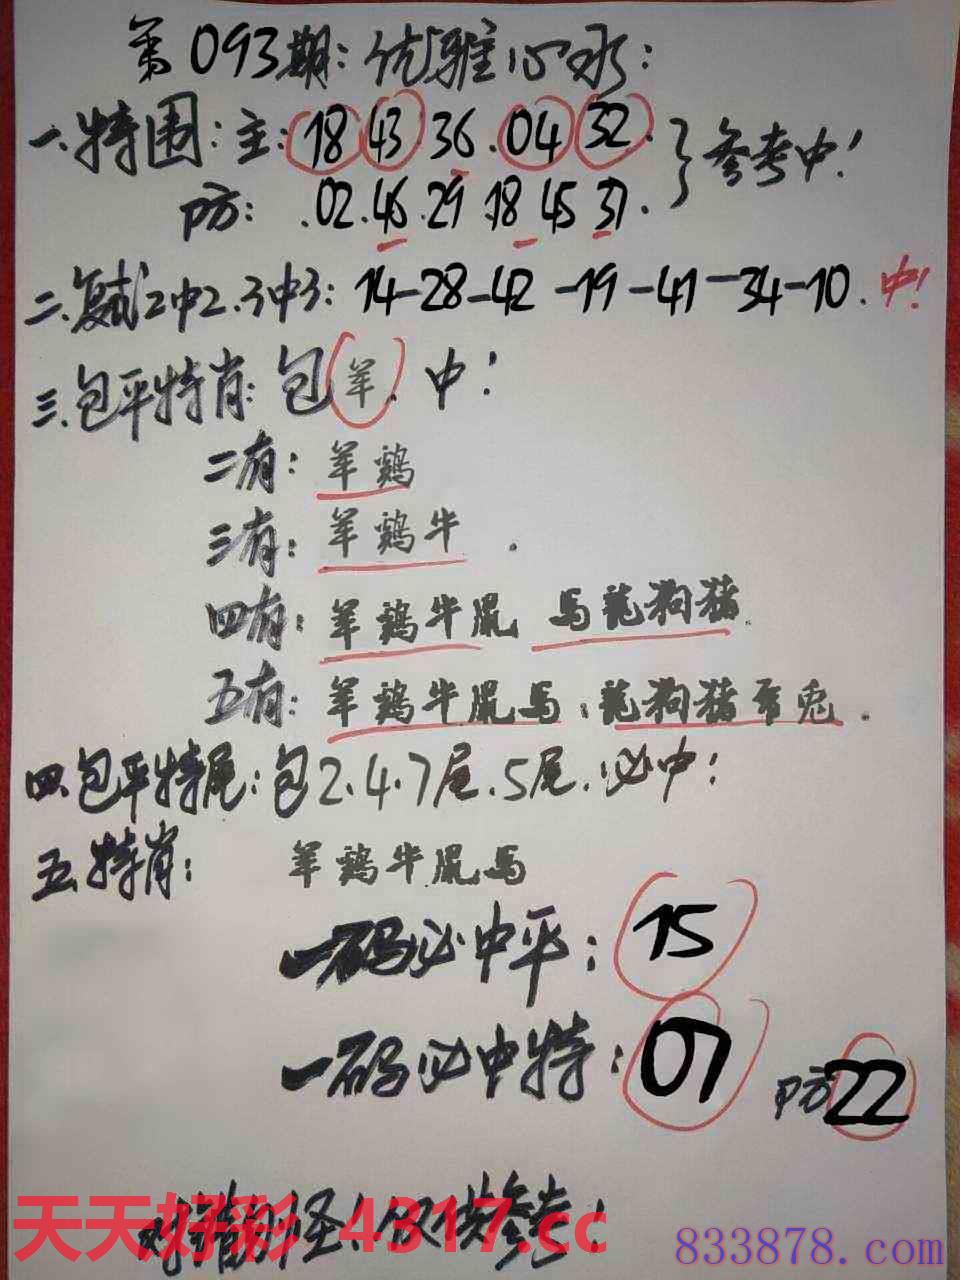 第093期:优雅心水:
一.特围:主:18 43 36.04 32.}参考中!
防:.02.46.29 18 45 31.
二.复试2中2.3中3:14-28-42-19-41-34-10.中!
三.包平特肖:包羊.中!
二有:羊鸡
三有:羊鸡牛.
四有:羊鸡牛鼠 馬龍狗猪
五有:羊鸡牛鼠馬:龍狗猪 兔.
四.包平特尾:包2.4.7尾.5尾.必中:
五.特肖: 羊鸡牛鼠馬
一码必中平:15
一码必中特:07 防22
对错勿怪!仅供参考!
天天好彩 4317.cc
833878.com